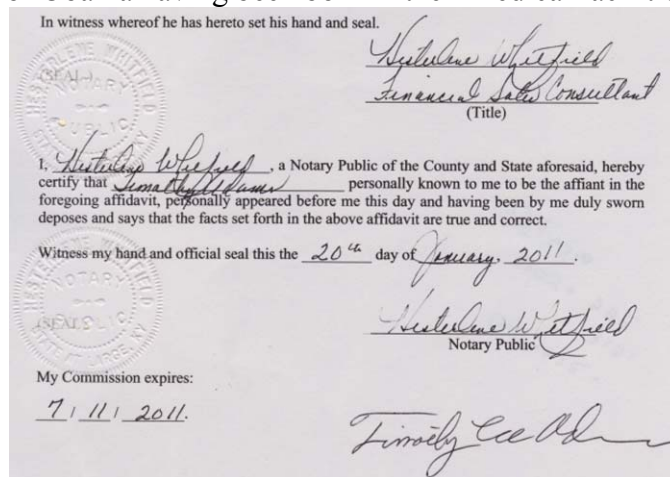 In witness whereof he has hereto set his hand and seal.
(SEAL)
HESTERLENE WHITFIELD
NOTARY
PUBLIC
Hesterlene Whitfield
Financial Sales Consultant
(Title)
I, Hesterlene Whitfield, a Notary Public of the County and State aforesaid, hereby
certify that Timothy Adams personally known to me to be the affiant in the
foregoing affidavit, personally appeared before me this day and having been by me duly sworn
deposes and says that the facts set forth in the above affidavit are true and correct.
Witness my hand and official seal this the 20th day of January, 2011.
HESTERLENE WHITFIELD
NOTARY
PUBLIC
(SEAL)
STATE AT LARGE, KY
Hesterlene Whitfield
Notary Public
My Commission expires:
7/11/2011.
Timothy Lee Adams